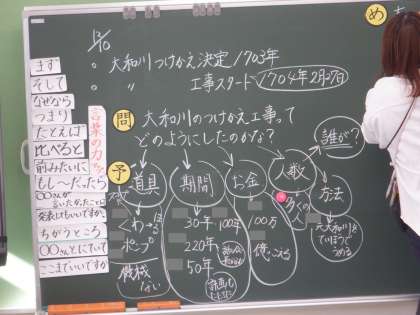 12/10
め
。大和川つけかえ決定 1703年
。 〃 工事スタート 1704年2月27日
問 大和川のつけかえ工事って
どのようにしたのかな?
誰が?
予
道具
期間
お金
人数
方法
くわ
ほる
機械
ない
30年
220年
50年
100年
100万
億こえる
多くの
人
元大和川を
ていぼうで
うめる
言葉の力
まず
そして
なぜなら
つまり
たとえば
比べると
前みたいに
もし〜だったら
〇〇さんが
言いたかったことは
発表してもいいですか。
ちがうところ
〇〇さんとにていて
ここまでいいですか